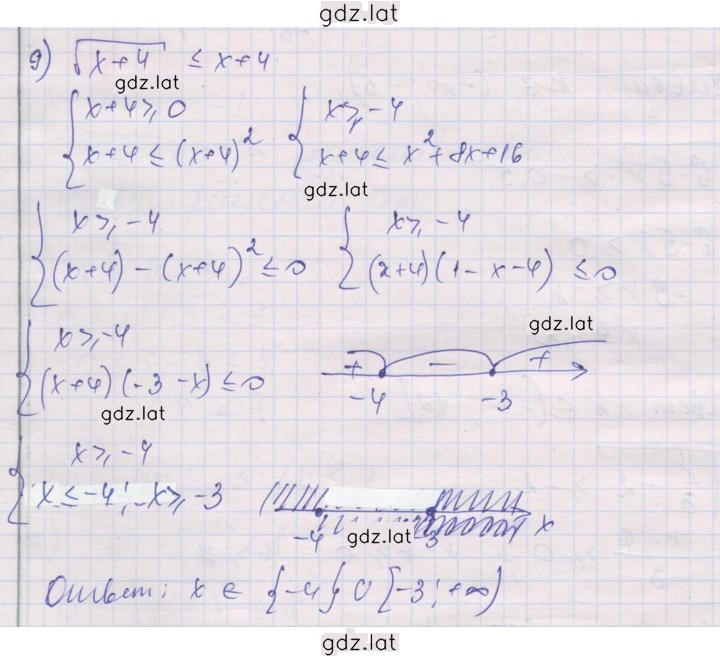 gdz.lat
g) √(x+4) ≤ x+4
gdz.lat
{ x+4 ≥ 0 { x ≥ -4
{ x+4 ≤ (x+4)² { x+4 ≤ x²+8x+16
gdz.lat
{ x ≥ -4 { x ≥ -4
{ (x+4) - (x+4)² ≤ 0 { (x+4)(1-x-4) ≤ 0
gdz.lat
{ x ≥ -4
{ (x+4)(-3-x) ≤ 0
+ - +
-4 -3
gdz.lat
{ x ≥ -4
{ x ≤ -4; x ≥ -3
-4 -3 x
gdz.lat
Ответ: x ∈ {-4} ∪ [-3; +∞)
gdz.lat